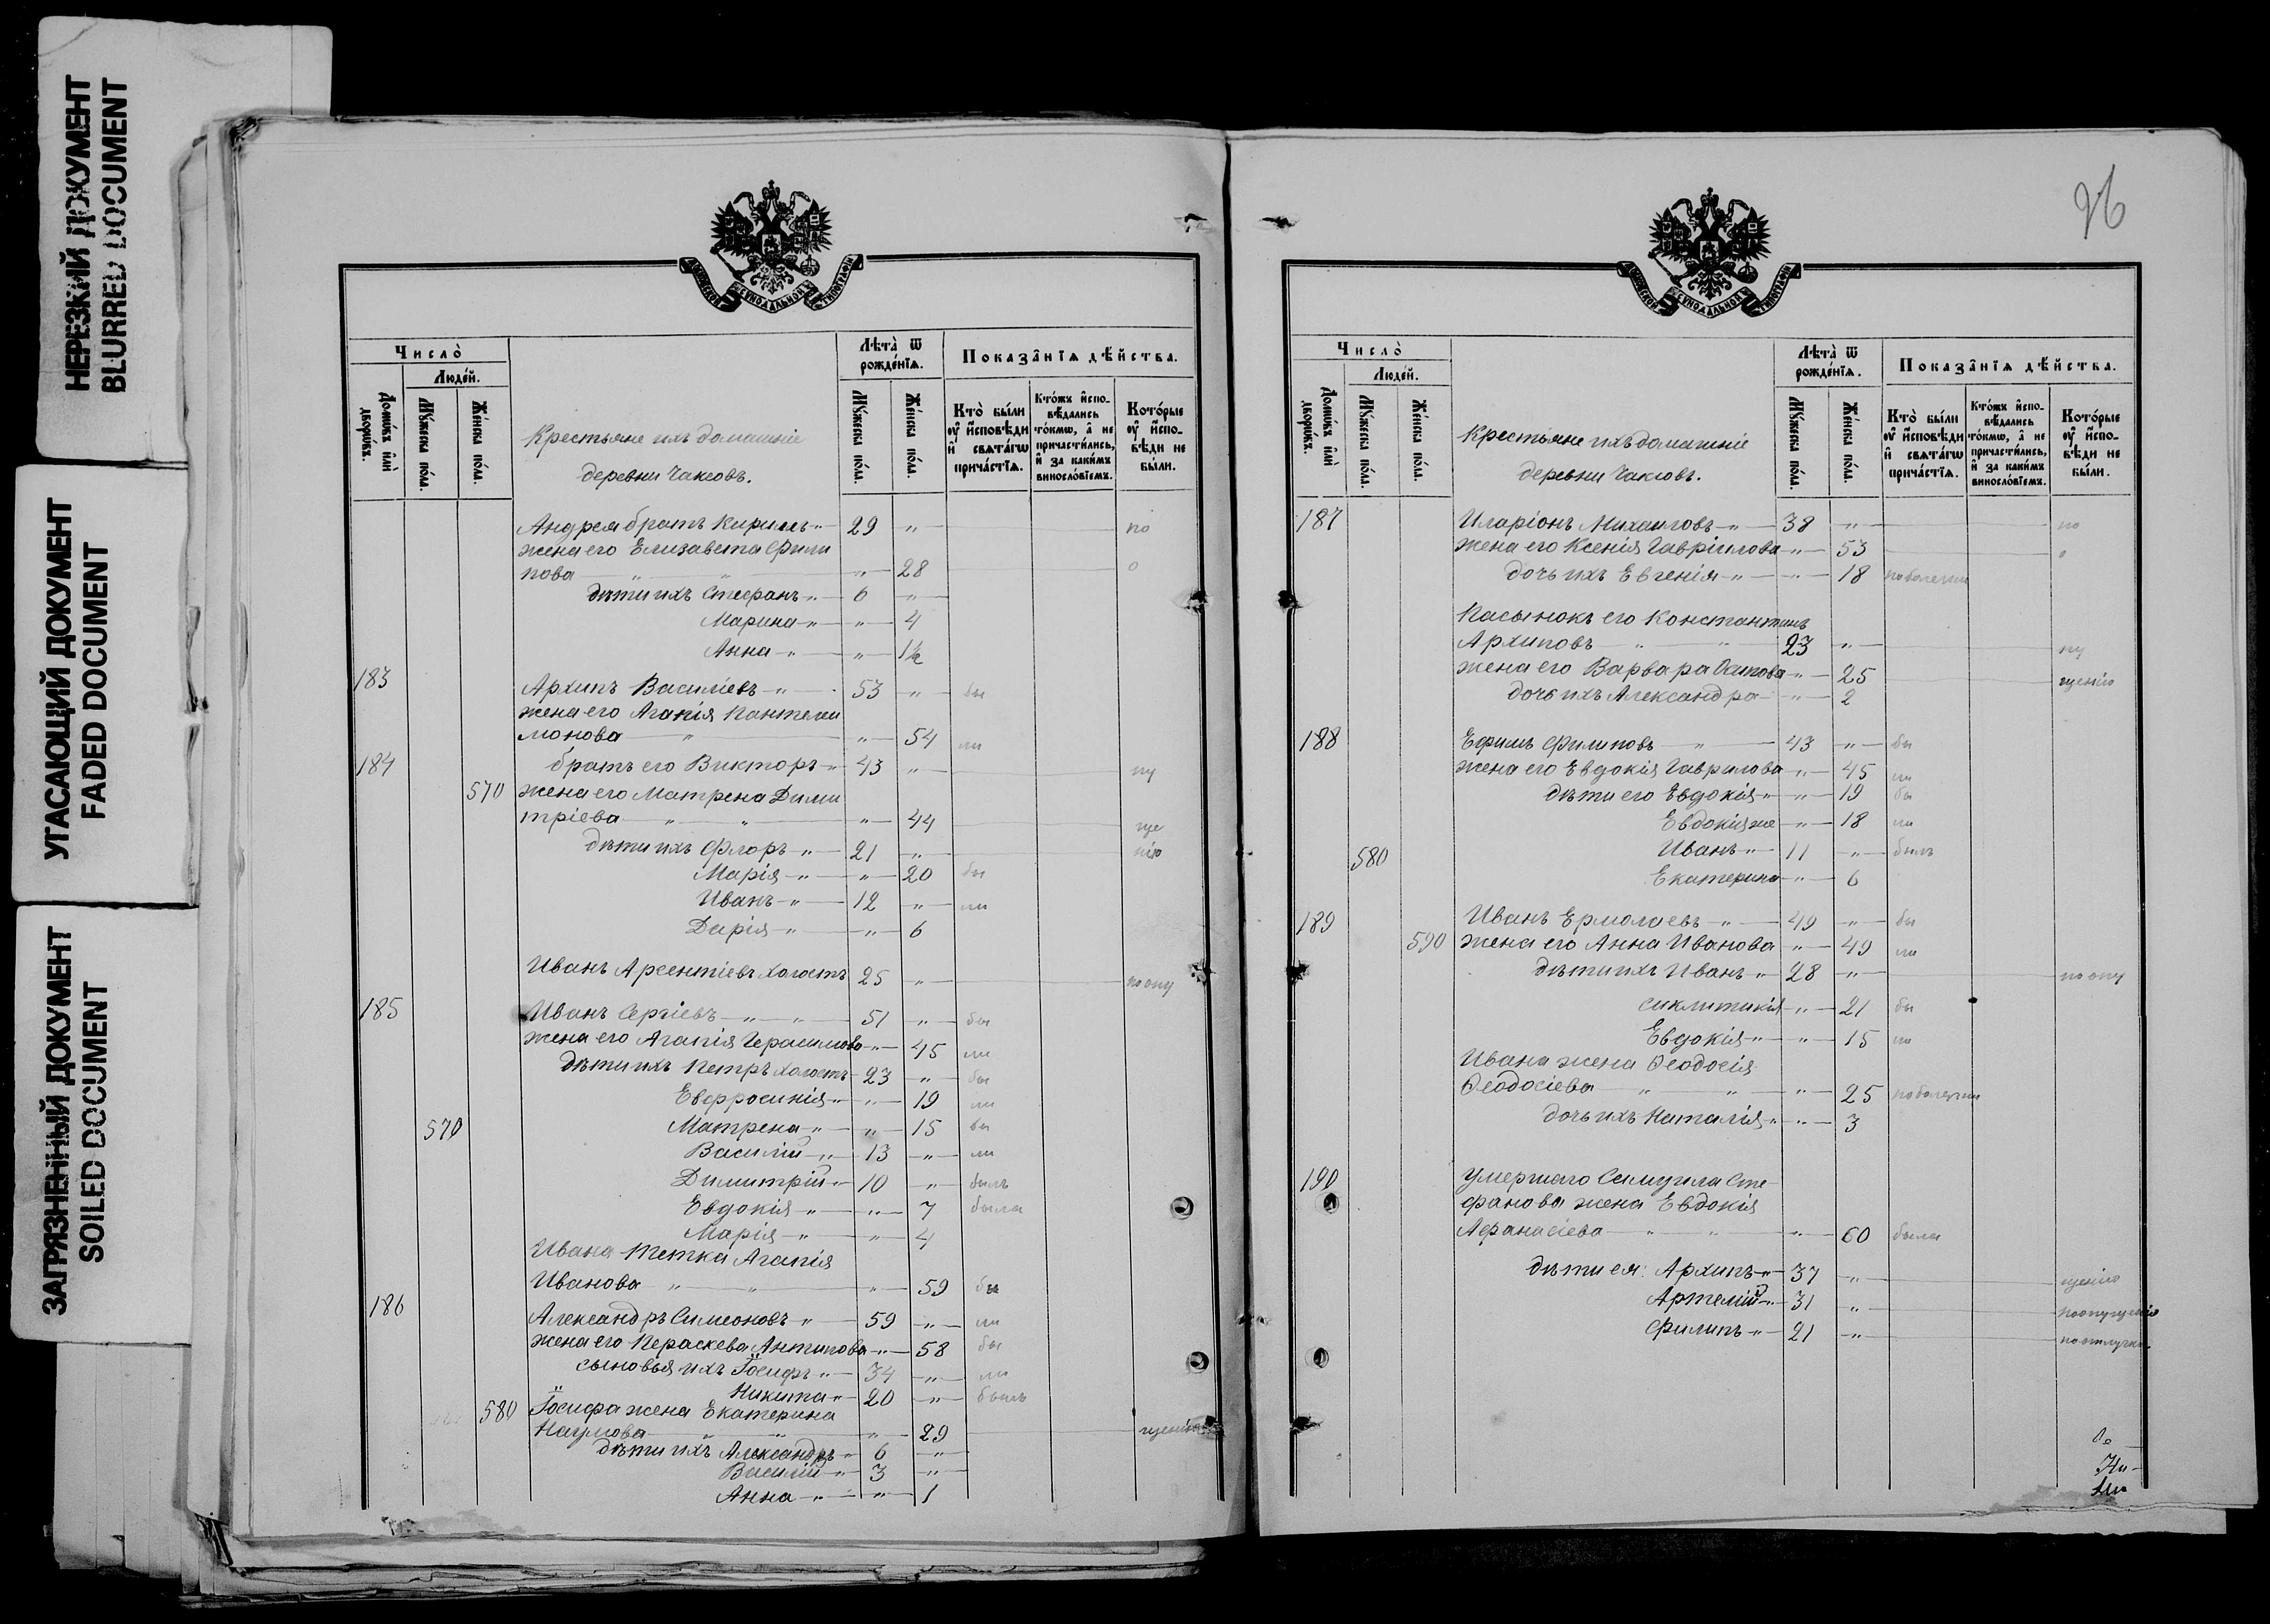 НЕРЕЗКИЙ ДОКУМЕНТ
BLURRED DOCUMENT
УГАСАЮЩИЙ ДОКУМЕНТ
FADED DOCUMENT
ЗАГРЯЗНЕННЫЙ ДОКУМЕНТ
SOILED DOCUMENT
Число̀
Людей.
Домѡ́въ и҆лѝ дворѡ́въ.
Мꙋ́жеска по́ла.
Же́нска по́ла.
Крестьяне ихъ домашніе
деревни Чаковъ.
Лѣта̀ ѿ рожде́нїѧ.
Мꙋ́жеска по́ла.
Же́нска по́ла.
Показа̑нїѧ дѣ́йства.
Кто̀ бы́ли ᲂу҆ и҆сповѣ́ди и҆ свѧта́гѡ прича́стїѧ.
Кто́жъ и҆спо-вѣ́дались то́кмѡ, а҆ не причасти́лись, и҆ за каки́мъ винosло́вїемъ.
Кото́рые ᲂу҆ и҆спо-вѣ́ди не бы́ли.
Андрея братъ Кириллъ " 29 " по
жена его Елизавета Фили
пова " " " 28 о
дѣти ихъ Стефанъ " 6 "
Марина " " 4
Анна " " 1½
183 Архипъ Василіевъ " 53 " бы
жена его Агапія Пантелеи
монова " " 54 ли
184 братъ его Викторъ " 43 " пу
570 жена его Матрена Дими
тріева " " " 44 ще
дѣти ихъ Флоръ " 21 " нію
Марія " " 20 бы
Иванъ " 12 " ли
Дарія " " 6
Иванъ Арсентіевъ холостъ 25 " по опу
185 Иванъ Сергіевъ " " 51 " бы
жена его Агапія Герасимова " 45 ли
дѣти ихъ Петръ холостъ 23 " бы
Евфросинія " " 19 ли
570 Матрена " " 15 бы
Василій " 13 " ли
Димитрій " 10 " былъ
Евдокія " " 7 была
Марія " " 4
Ивана тетка Агапія
Иванова " " " 59 бы
186 Александръ Симеоновъ " 59 " ли
жена его Пераскева Антипова " 58 бы
сыновья ихъ Іосифъ " 34 " ли
Никита " 20 " былъ
580 Іосифа жена Екатерина
Наумова " " " 29 щенію
дѣти ихъ Александръ " 6 "
Василій " 3 "
Анна " " 1
26
Число̀
Людей.
Домѡ́въ и҆лѝ дворѡ́въ.
Мꙋ́жеска по́ла.
Же́нска по́ла.
Крестьяне ихъ домашніе
деревни Чаковъ.
Лѣта̀ ѿ рожде́нїѧ.
Мꙋ́жеска по́ла.
Же́нска по́ла.
Показа̑нїѧ дѣ́йства.
Кто̀ бы́ли ᲂу҆ и҆сповѣ́ди и҆ свѧта́гѡ прича́стїѧ.
Кто́жъ и҆спо-вѣ́дались то́кмѡ, а҆ не причасти́лись, и҆ за каки́мъ винosло́вїемъ.
Кото́рые ᲂу҆ и҆спо-вѣ́ди не бы́ли.
187 Иларіонъ Михаиловъ " 38 " по
жена его Ксенія Гавріилова " 53 о
дочь ихъ Евгенія " " 18 по болезни
Пасынокъ его Константинъ
Архиповъ " " 23 " пу
жена его Варвара Осипова " 25 щенію
дочь ихъ Александра " 2
188 Ефимъ Филиповъ " 43 " бы
жена его Евдокія Гаврилова " 45 ли
дѣти его Евдокія " " 19 бы
Евдокія же " 18 ли
580 Иванъ " 11 " былъ
Екатерина " 6
189 Иванъ Ермолаевъ " 49 " бы
590 жена его Анна Иванова " 49 ли
дѣти ихъ Иванъ " 28 " по опу
Синклитикія " 21 бы
Евдокія " " 15 ли
Ивана жена Ѳеодосія
Ѳеодосіева " " " 25 по болезни
дочь ихъ Наталія " " 3
190 Умершаго Самуила Сте
фанова жена Евдокія
Афанасіева " " " 60 была
дѣти ея: Архипъ " 37 " щенію
Артемій " 31 " по опущенію
Филипъ " 21 " по отлучке